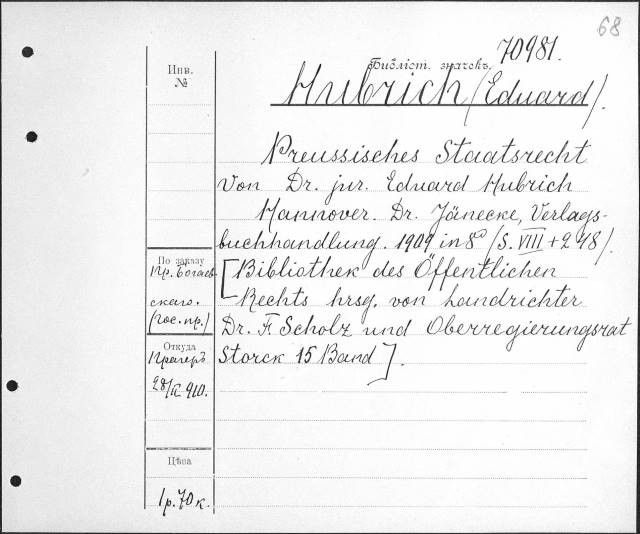 68
70981.
Библіот. значекъ
Hubrich (Eduard).
Инв.
№
Preussisches Staatsrecht
von Dr. jur. Eduard Hubrich
Hannover. Dr. Jänecke, Verlags-
buchhandlung. 1909 in 8º (S. VIII + 248).
[Bibliothek des Öffentlichen
Rechts hrsg. von Landrichter
Dr. F. Scholz und Oberregierungsrat
Storck 15 Band].
По заказу
Пр. Богаев-
скаго.
(гос. пр.)
Откуда
Прагеръ
28/II 910.
Цѣна
1 р. 70 к.